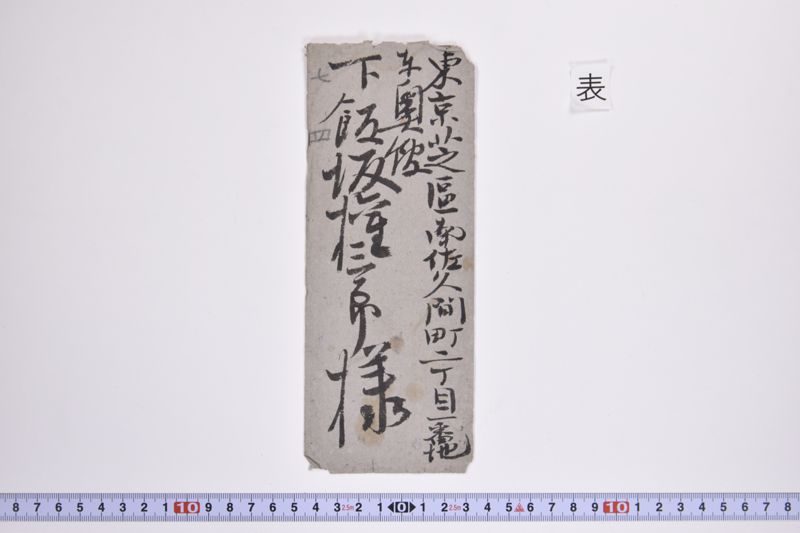 表
東京芝區南佐久間町二丁目一番地
東奥館
下飯坂権三郎様
七
四
8 7 6 5 4 3 2 1 10 9 8 7 6 5 4 3 2.5m 2 1 0 1 2 2.5m 3 4 5 6 7 8 9 10 1 2 3 4 5 6 7 8